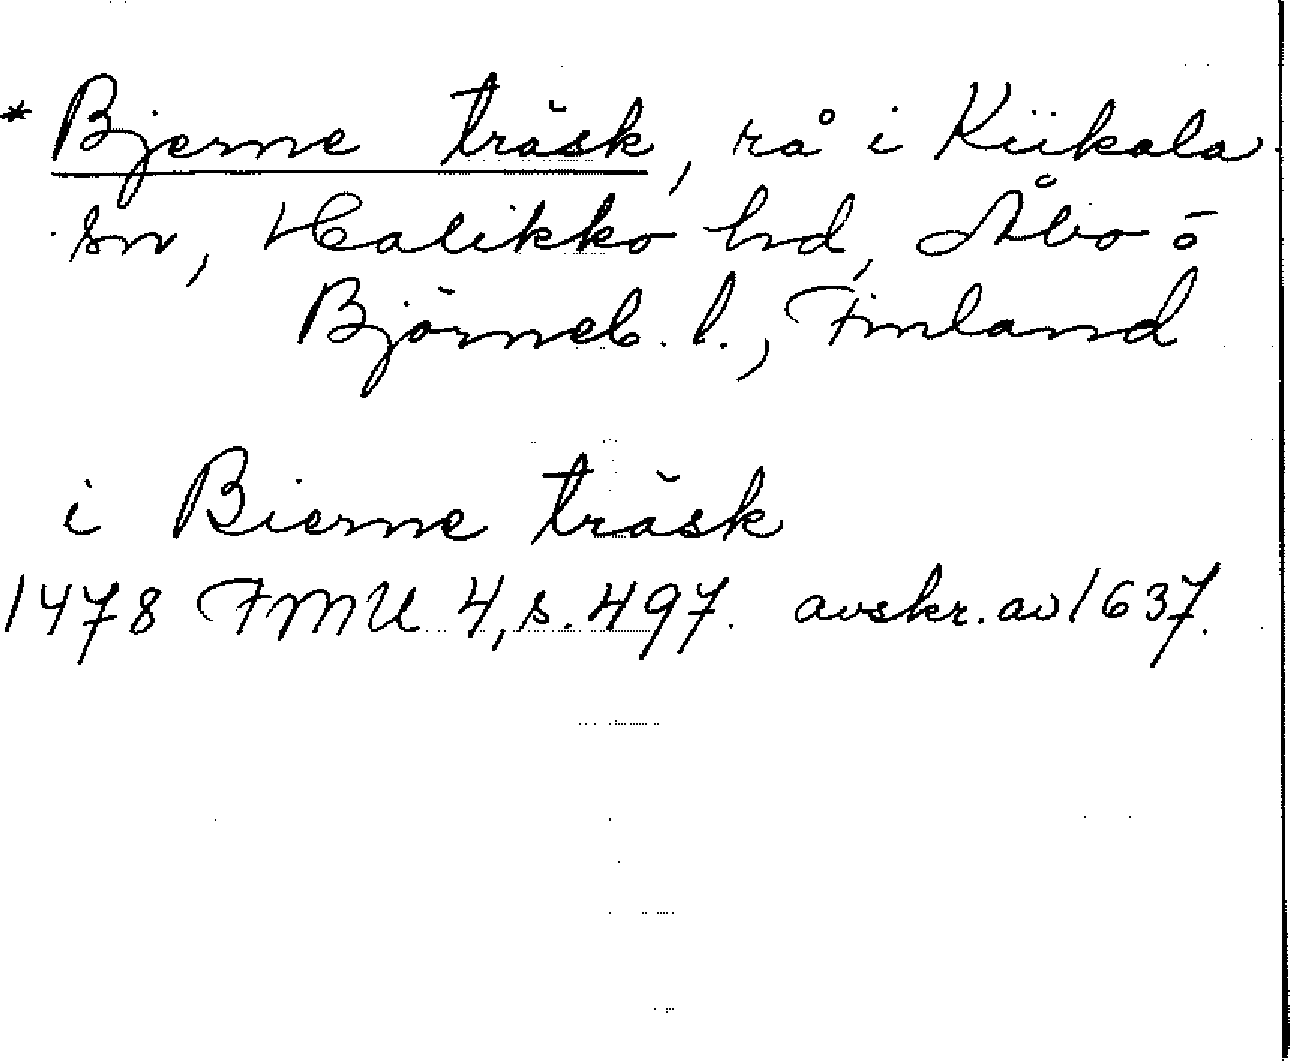 * Bjerne träsk, rå i Kiikala
sn, Halikko hd, Åbo o
Björneb. l., Finland
i Bierne träsk
1478 FMU 4, s. 497. avskr. av 1637.